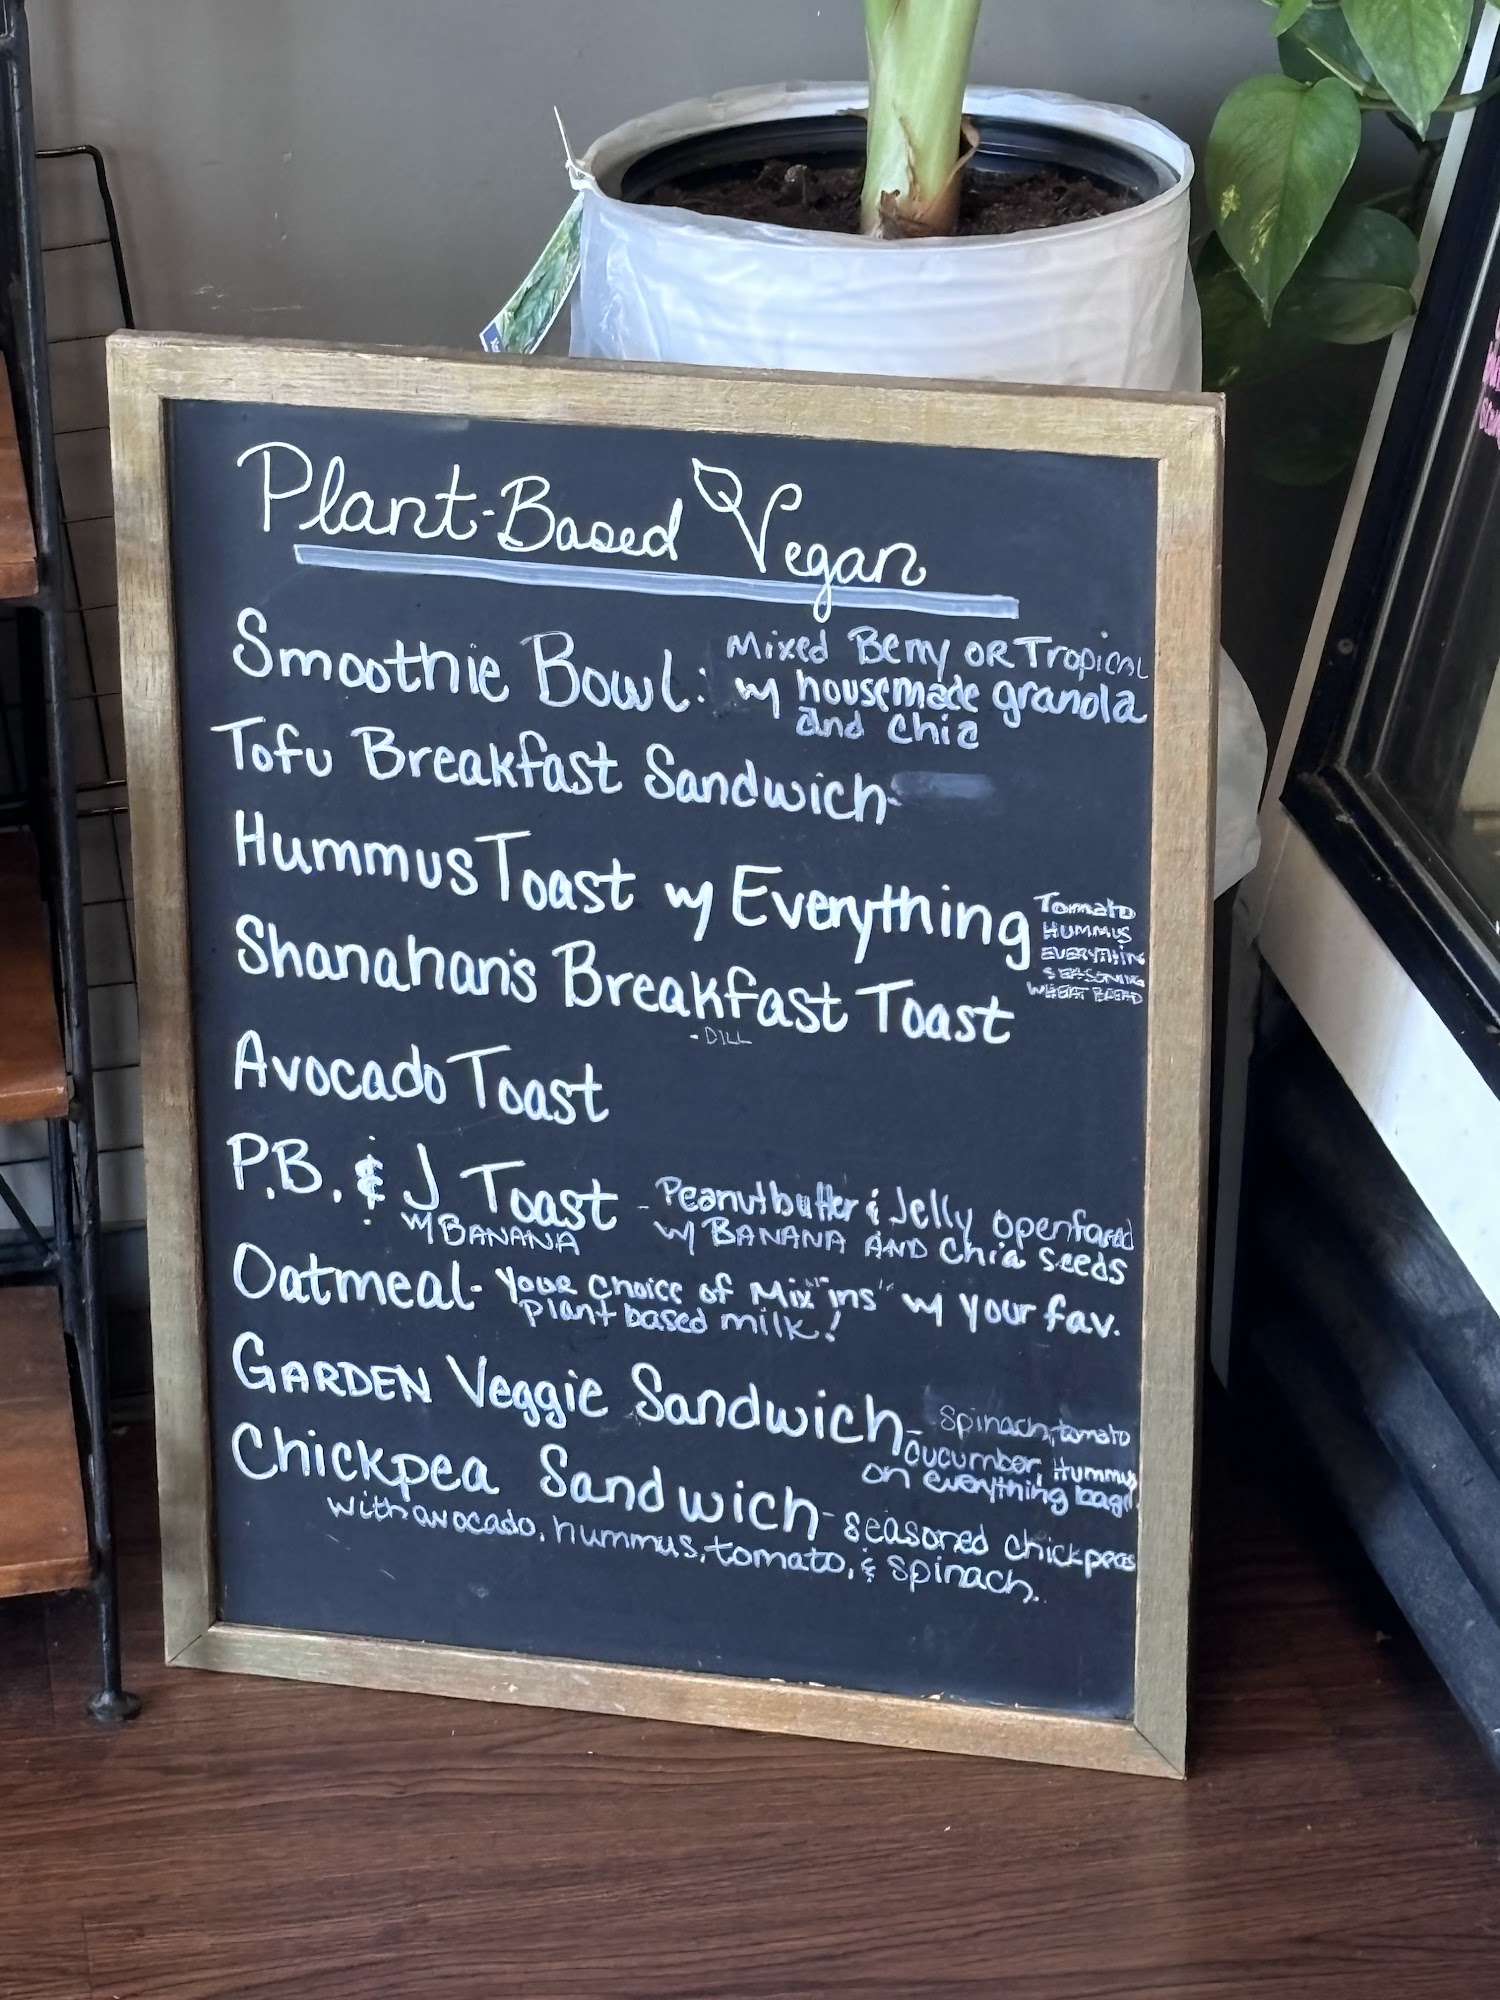 Plant-Based Vegan
Smoothie Bowl: Mixed Berry OR Tropical
w/ housemade granola
and chia
Tofu Breakfast Sandwich-
Hummus Toast w/ Everything
Tomato
HUMMUS
EVERYTHIN
SEASONING
WHEAT BREAD
Shanahan's Breakfast Toast
- DILL
Avocado Toast
P.B. & J Toast - Peanutbutter & Jelly openfaced
w/ BANANA
w/ BANANA AND Chia Seeds
Oatmeal- Your choice of Mix "ins" w/ your fav.
plant based milk!
GARDEN Veggie Sandwich- Spinach, tomato
cucumber, Hummus
on everything bagel.
Chickpea Sandwich- seasoned chickpeas
with avocado, hummus, tomato, & spinach.